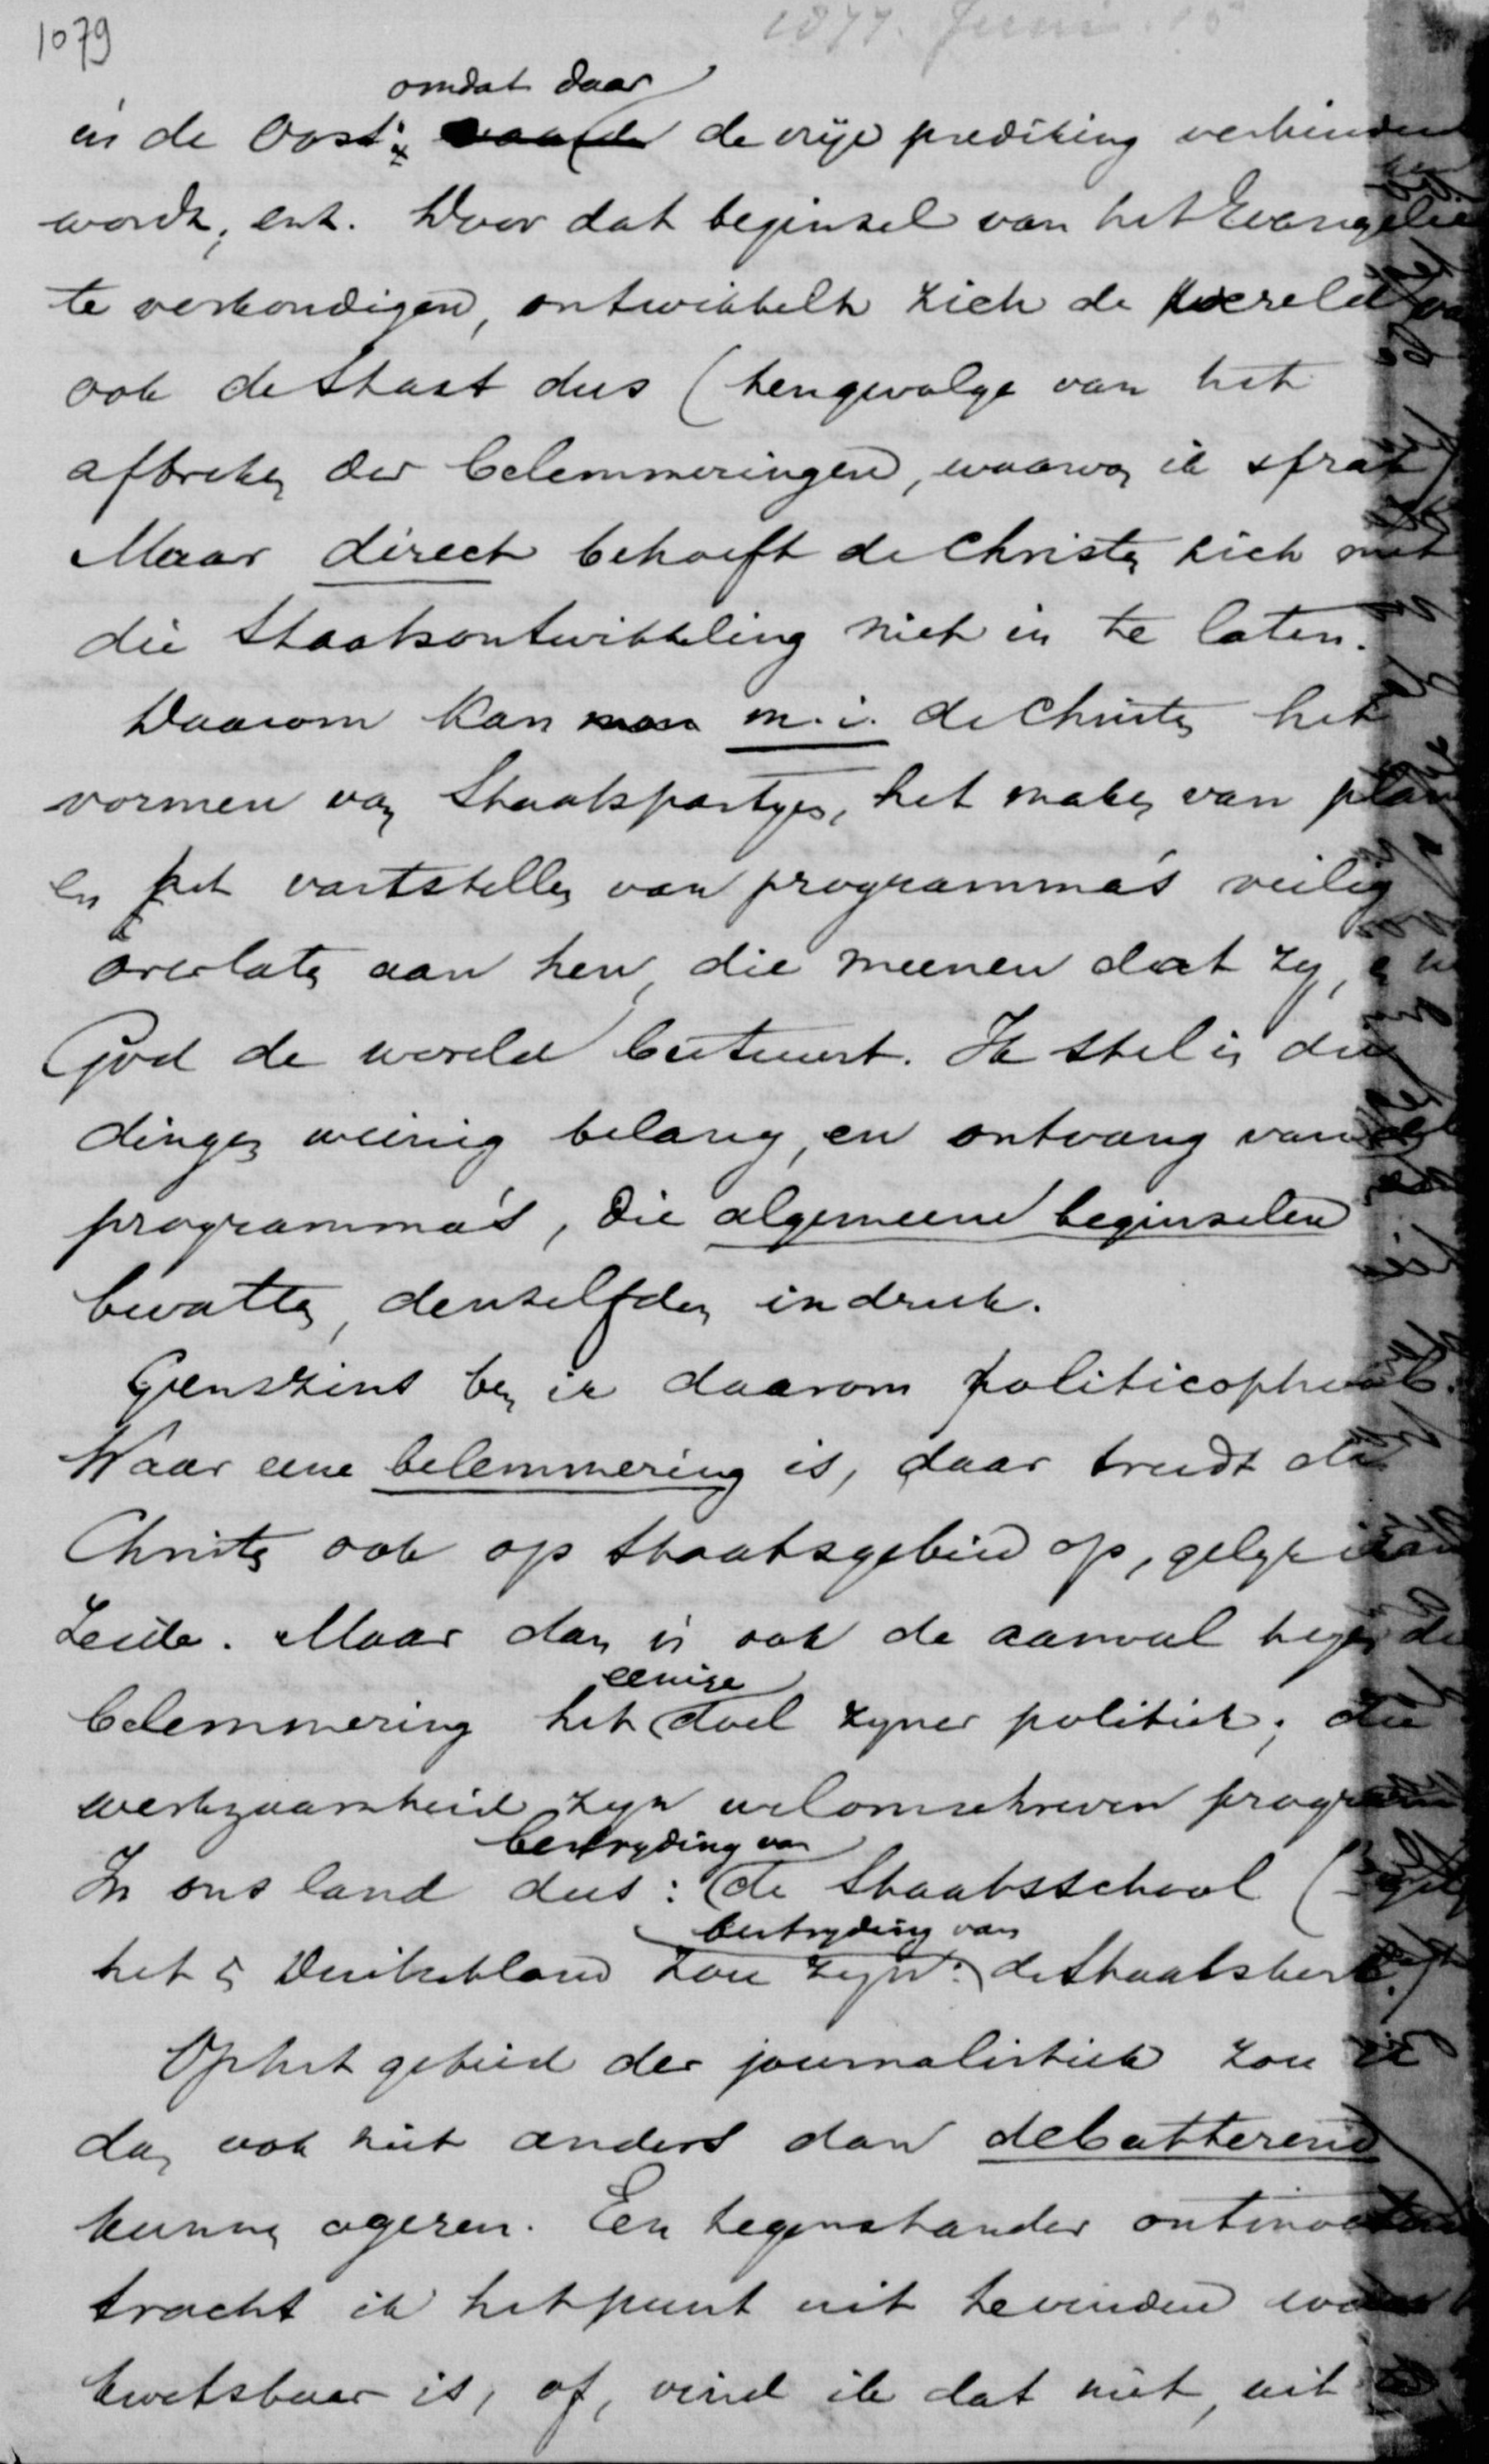 1079
1877. Juni 15
omdat daar
in de Oost; de vrije prediking verhinderd
wordt, enz. Door dat beginsel van het Evangelie
te verkondigen, ontwikkelt zich de wereld
ook de Staat dus (tengevolge van het
afbreken der belemmeringen, waarvan ik sprak)
Maar direct behoeft de Christen zich met
die Staatsontwikkeling niet in te laten.
Daarom kan man m.i. de Christen het
vormen van Staatspartijen, het maken van plan
en het vaststellen van programma's veilig
overlaten aan hen, die meenen dat zij,
God de wereld bestuurt. Ik stel in die
dingen weinig belang, en ontvang van
programma's, die algemeene beginselen
bevatten, denzelfden indruk.
Geenszins ben ik daarom politicophoob.
Waar eene belemmering is, daar treedt de
Christen ook op Staatsgebied op, gelijk ik
zeide. Maar dan is ook de aanval tegen de
eenige
belemmering het doel zijner politiek; die
werkzaamheid zijn welomschreven program
bestrijding van
In ons land dus: de Staatsschool (
bestrijding van
het in Duitschland zou zijn: de Staatskerk.
Op het gebied der journalistiek zou ik
dan ook niet anders dan debatterend
kunnen ageren. Een tegenstander ontmoetend
tracht ik het punt uit te vinden
kwetsbaar is, of, vind ik dat niet, uit